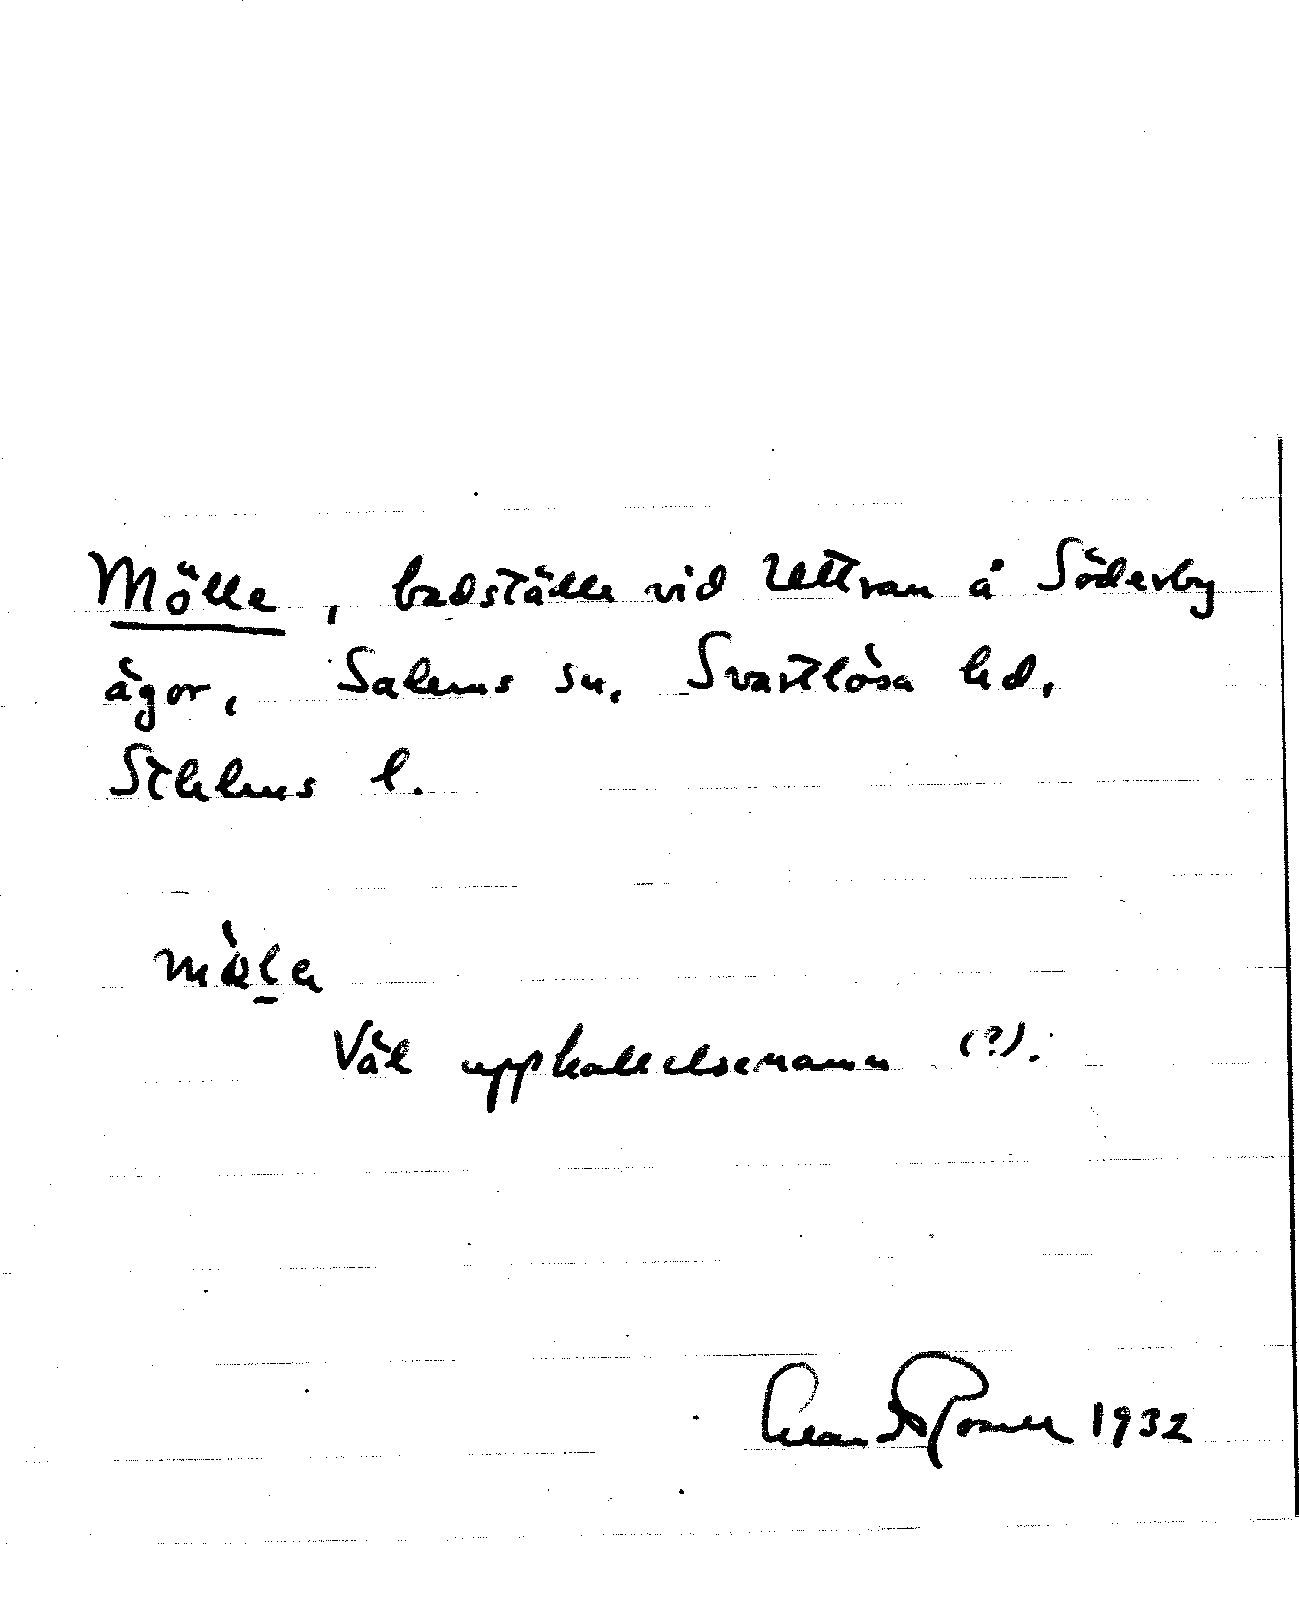 Mölle, badställe vid Uttran å Söderby
ägor, Salems sn. Svartlösa hd.
Sthlms l.
Väl uppkallelsenamn (?).
1932